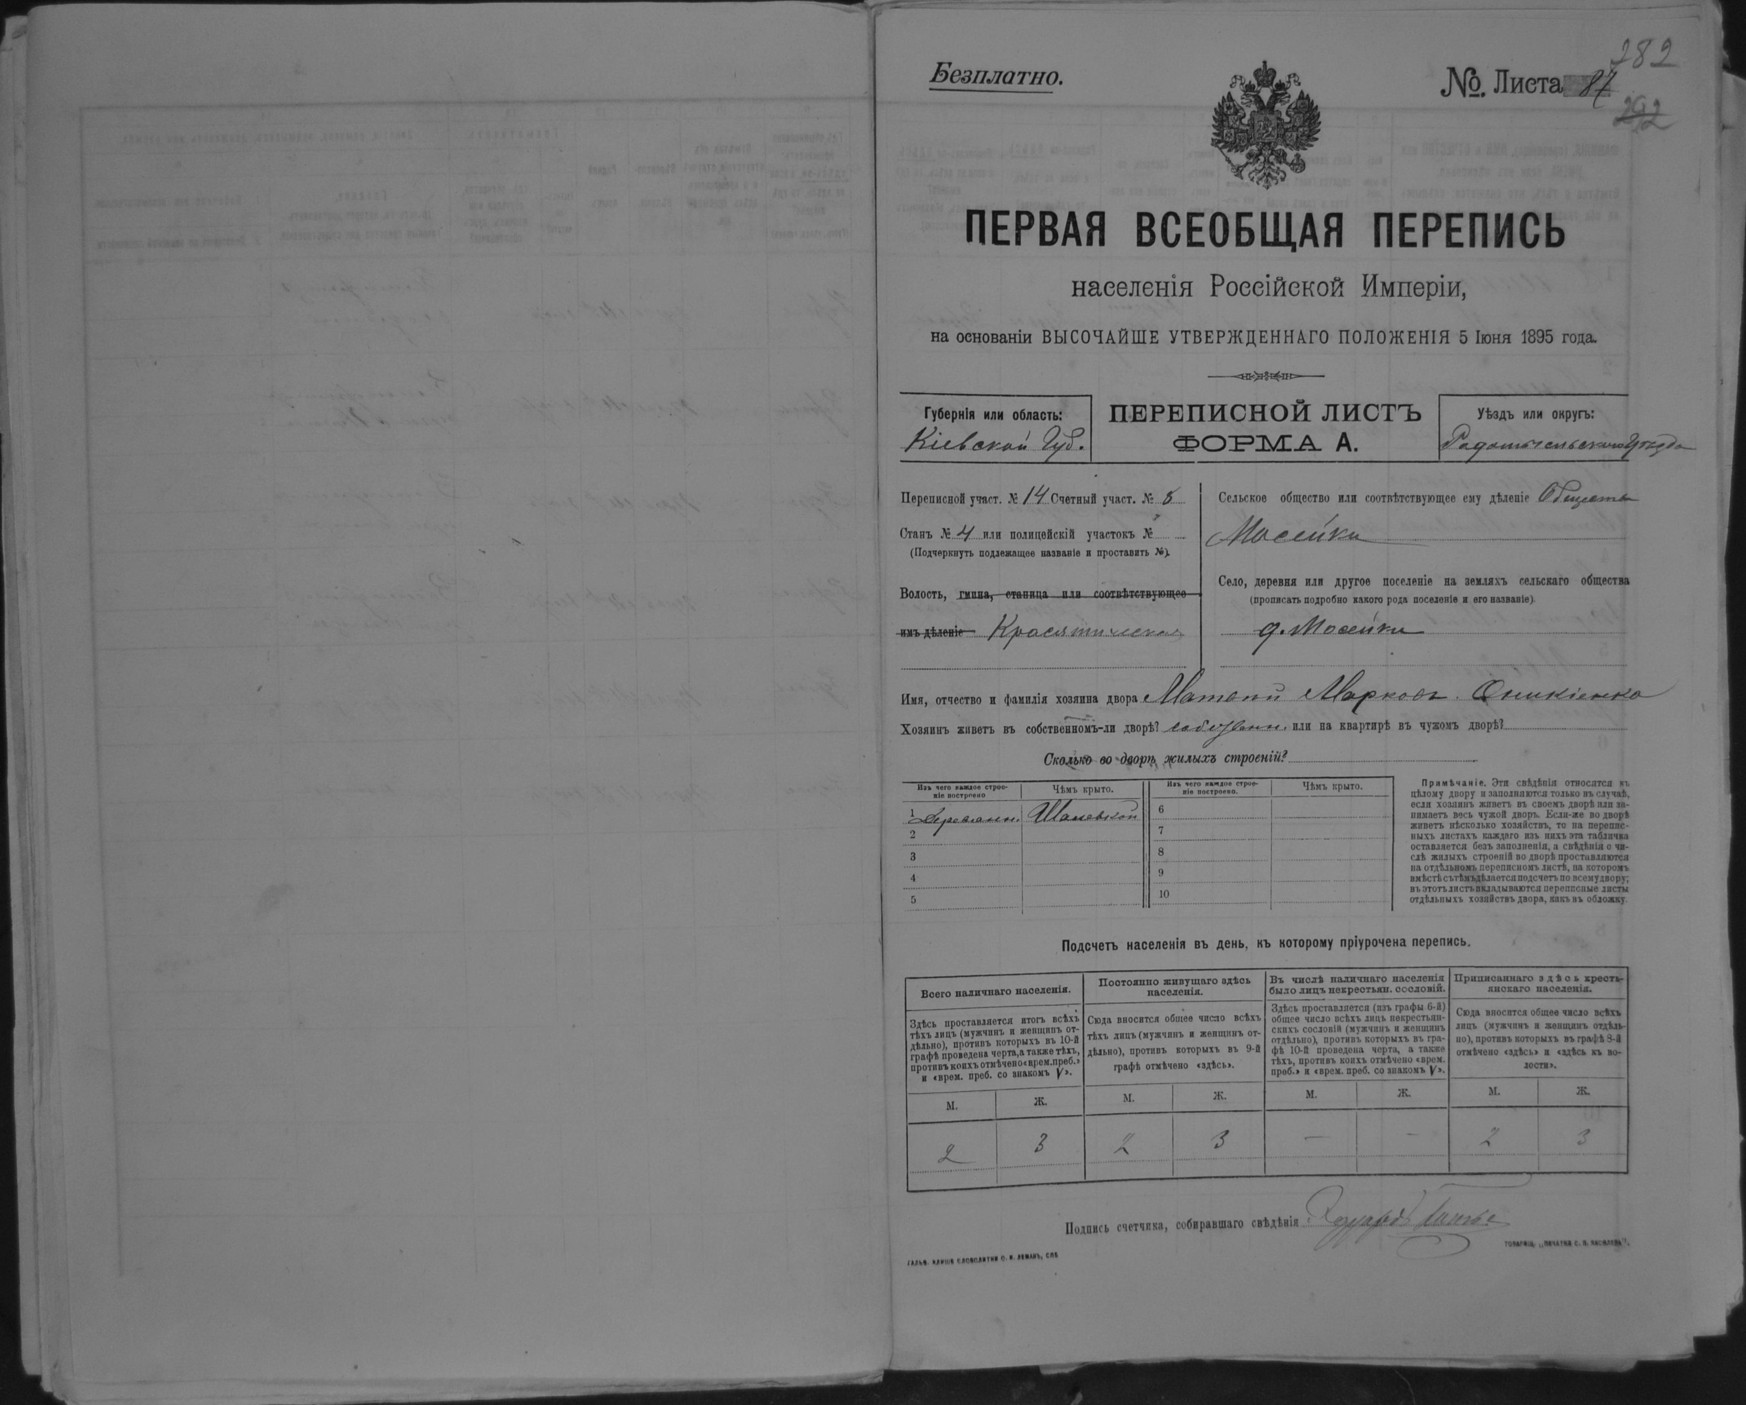 282
Безплатно.
№. Листа 87
292
ПЕРВАЯ ВСЕОБЩАЯ ПЕРЕПИСЬ
населенія Россійской Имперіи,
на основаніи ВЫСОЧАЙШЕ УТВЕРЖДЕННАГО ПОЛОЖЕНІЯ 5 Іюня 1895 года.
Губернія или область:
Кіевской Губ.
ПЕРЕПИСНОЙ ЛИСТЪ
ФОРМА А.
Уѣздъ или округъ:
Радомысльскаго Уѣзда
Переписной участ. № 14 Счетный участ. № 5
Станъ № 4 или полицейскій участокъ №
(Подчеркнуть подлежащее названіе и проставить №).
Волость, гмина, станица или соотвѣтствующее
имъ дѣленіе Красятическая
Сельское общество или соотвѣтствующее ему дѣленіе Общество
Мосейки
Село, деревня или другое поселеніе на земляхъ сельскаго общества
(прописать подробно какого рода поселеніе и его названіе)
д. Мосейки
Имя, отчество и фамилія хозяина двора Матвій Марковъ Оникіенко
Хозяинъ живетъ въ собственномъ-ли дворѣ? собствен. или на квартирѣ въ чужомъ дворѣ?
Сколько во дворѣ жилыхъ строеній?
Изъ чего каждое строеніе построено
Чѣмъ крыто.
Изъ чего каждое строеніе построено.
Чѣмъ крыто.
1 Деревянн.
6
2
7
3
8
4
9
5
10
Примѣчаніе. Эти свѣдѣнія относятся къ
цѣлому двору и заполняются только въ случаѣ,
если хозяинъ живетъ въ своемъ дворѣ или за-
нимаетъ весь чужой дворъ. Если-же во дворѣ
живетъ нѣсколько хозяйствъ, то на перепис-
ныхъ листахъ каждаго изъ нихъ эта табличка
оставляется безъ заполненія, а свѣдѣнія о чи-
слѣ жилыхъ строеній во дворѣ проставляются
на отдѣльномъ переписномъ листѣ, на которомъ
вмѣстѣ съ тѣмъ дѣлается подсчетъ по всему двору;
въ этотъ листъ вкладываются переписные листы
отдѣльныхъ хозяйствъ двора, какъ въ обложку.
Подсчетъ населенія въ день, къ которому пріурочена перепись.
Всего наличнаго населенія.
Здѣсь проставляется итогъ всѣхъ
тѣхъ лицъ (мужчинъ и женщинъ от-
дѣльно), противъ которыхъ въ 10-й
графѣ проведена черта, а также тѣхъ,
противъ коихъ отмѣчено «врем. преб.»
и «врем. преб. со знакомъ V».
М. Ж.
2 3
Постоянно живущаго здѣсь
населенія.
Сюда вносится общее число всѣхъ
тѣхъ лицъ (мужчинъ и женщинъ от-
дѣльно), противъ которыхъ въ 9-й
графѣ отмѣчено «здѣсь».
М. Ж.
2 3
Въ числѣ наличнаго населенія
было лицъ некрестьян. сословій.
Здѣсь проставляется (изъ графы 6-й)
общее число всѣхъ лицъ некрестьян-
скихъ сословій (мужчинъ и женщинъ
отдѣльно), противъ которыхъ въ гра-
фѣ 10-й проведена черта, а также
тѣхъ, противъ коихъ отмѣчено «врем.
преб.» и «врем. преб. со знакомъ V».
М. Ж.
— —
Приписаннаго здѣсь кресть-
янскаго населенія.
Сюда вносится общее число всѣхъ
лицъ (мужчинъ и женщинъ отдѣль-
но), противъ которыхъ въ графѣ 8-й
отмѣчено «здѣсь» и «здѣсь въ во-
лости».
М. Ж.
2 3
Подпись счетчика, собиравшаго свѣдѣнія Эдуардъ